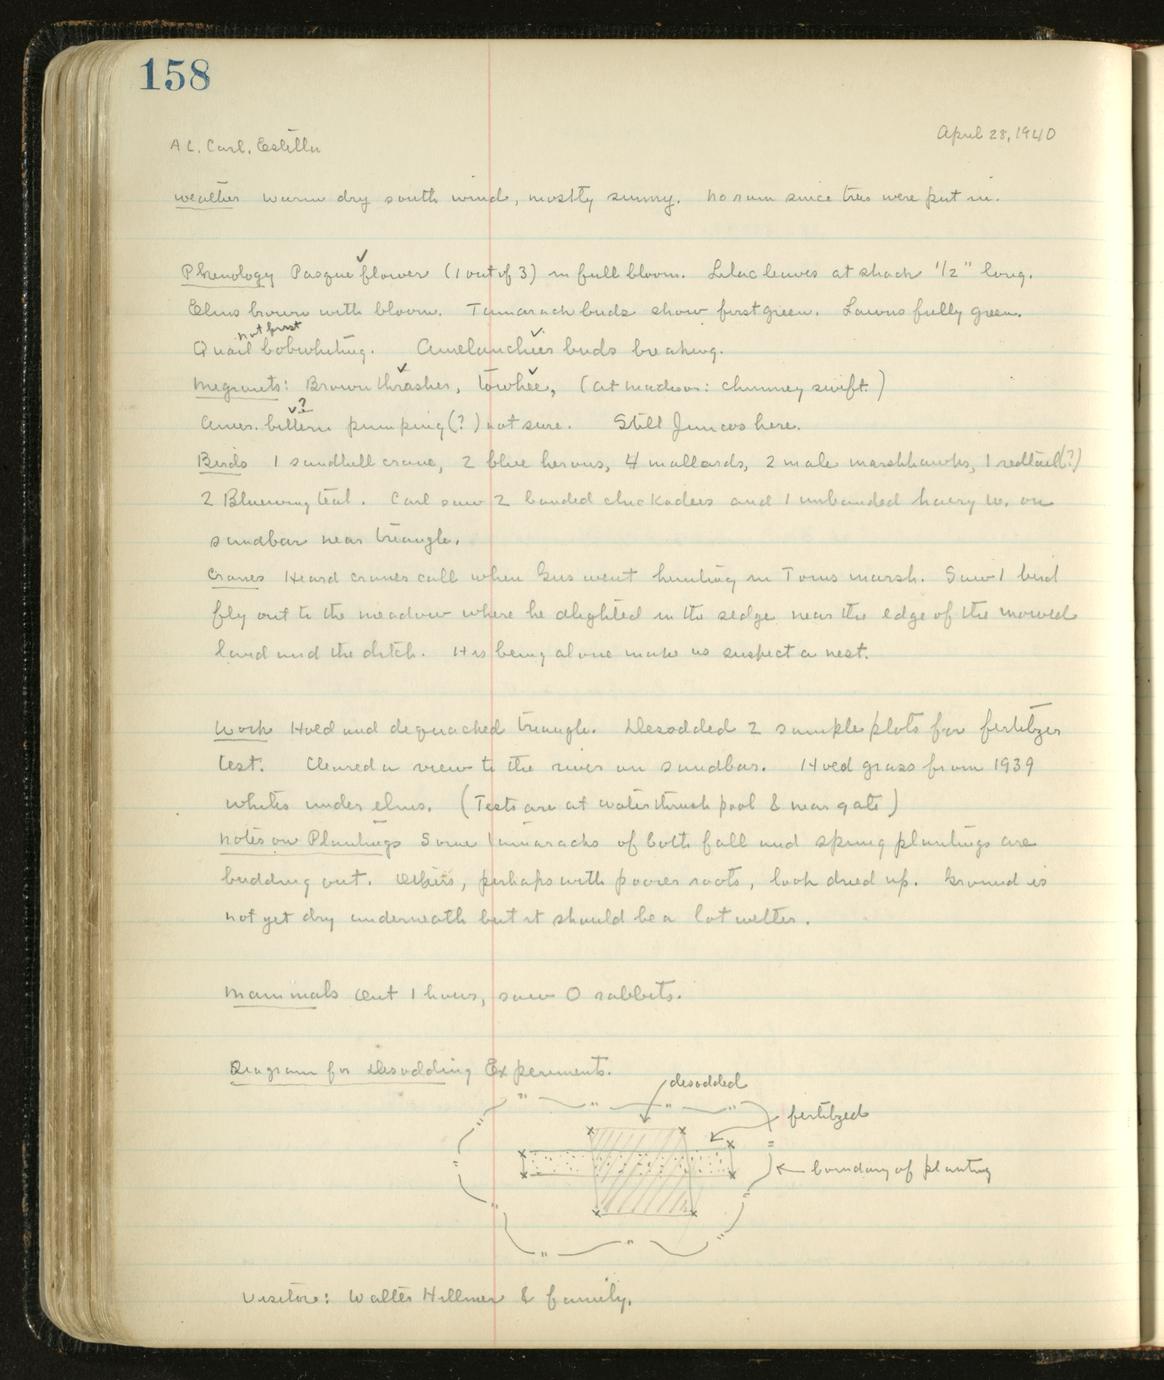 158
April 28, 1940
AL, Carl, Estella
Weather Warm dry south wind, mostly sunny. No rain since trees were put in.
Phenology Pasque flower (1 out of 3) in full bloom. Lilac leaves at shack 1/2" long.
Elms brown with bloom. Tamarack buds show first green. Lawns fully green.
not first
Quail bobwhiting. Amelanchier buds breaking.
Migrants: Brown thrasher, towhee, (at Madison: chimney swift)
?
Amer. bittern pumping (?) not sure. Still Juncos here.
Birds 1 sandhill crane, 2 blue herons, 4 mallards, 2 male marshhawks, 1 redtail (?)
2 Bluewing teal. Carl saw 2 banded chickadees and 1 unbanded hairy w. on
sandbar near triangle.
Cranes Heard cranes call when Gus went hunting in Toms marsh. Saw 1 bird
fly out to the meadow where he alighted in the sedge near the edge of the mowed
land and the ditch. His being alone make us suspect a nest.
Work Hoed and dequacked triangle. Desodded 2 sample plots for fertilizer
test. Cleared a view to the river on sandbar. Hoed grass from 1939
whites under elms. (Tests are at waterthrush pool & near gate)
Notes on Plantings Some tamaracks of both fall and spring plantings are
budding out. Others, perhaps with poorer roots, look dried up. Ground is
not yet dry underneath but it should be a lot wetter.
Mammals Out 1 hour, saw 0 rabbits.
Diagram for Desodding Experiments.
desodded
fertilized
boundary of planting
Visitors: Walter Hillmer & family.